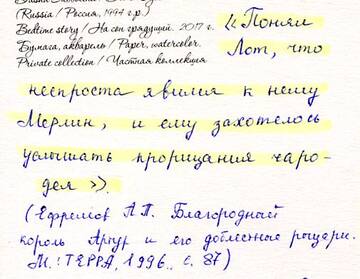 (Russia / Россия, 1994 г.р.)
Bedtime story / На сон грядущий. 2017 г.
Бумага, акварель / Paper, watercolor.
Private collection / Частная коллекция
« Понял
Лот, что
неспроста явился к нему
Мерлин, и ему захотелось
услышать прорицания чаро-
дея ».
(Ефремов А.П. Благородный
король Артур и его доблестные рыцари.
М.: ТЕРРА, 1996, с. 87)